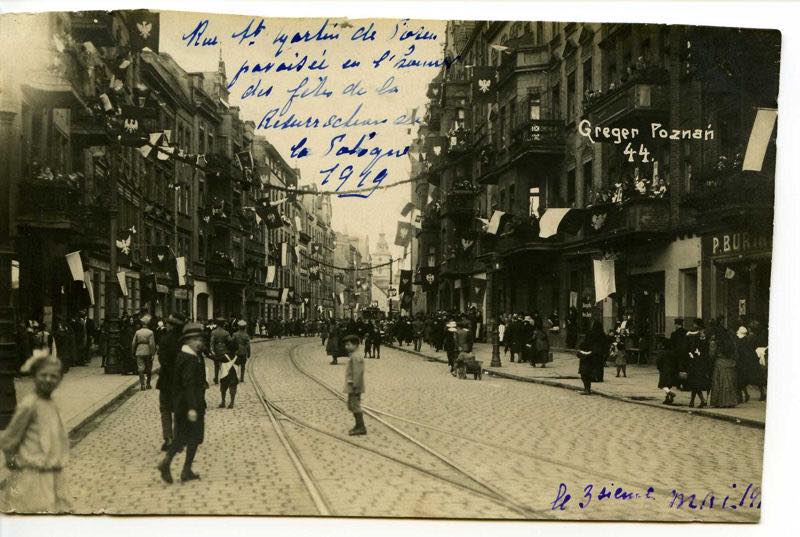 Rue St Martin de Posen
pavoisée en l'honneur
des fêtes de la
Résurrection de
la Pologne
1919
Greger Poznań
44.
P. BURI
le 3sieme mai 191